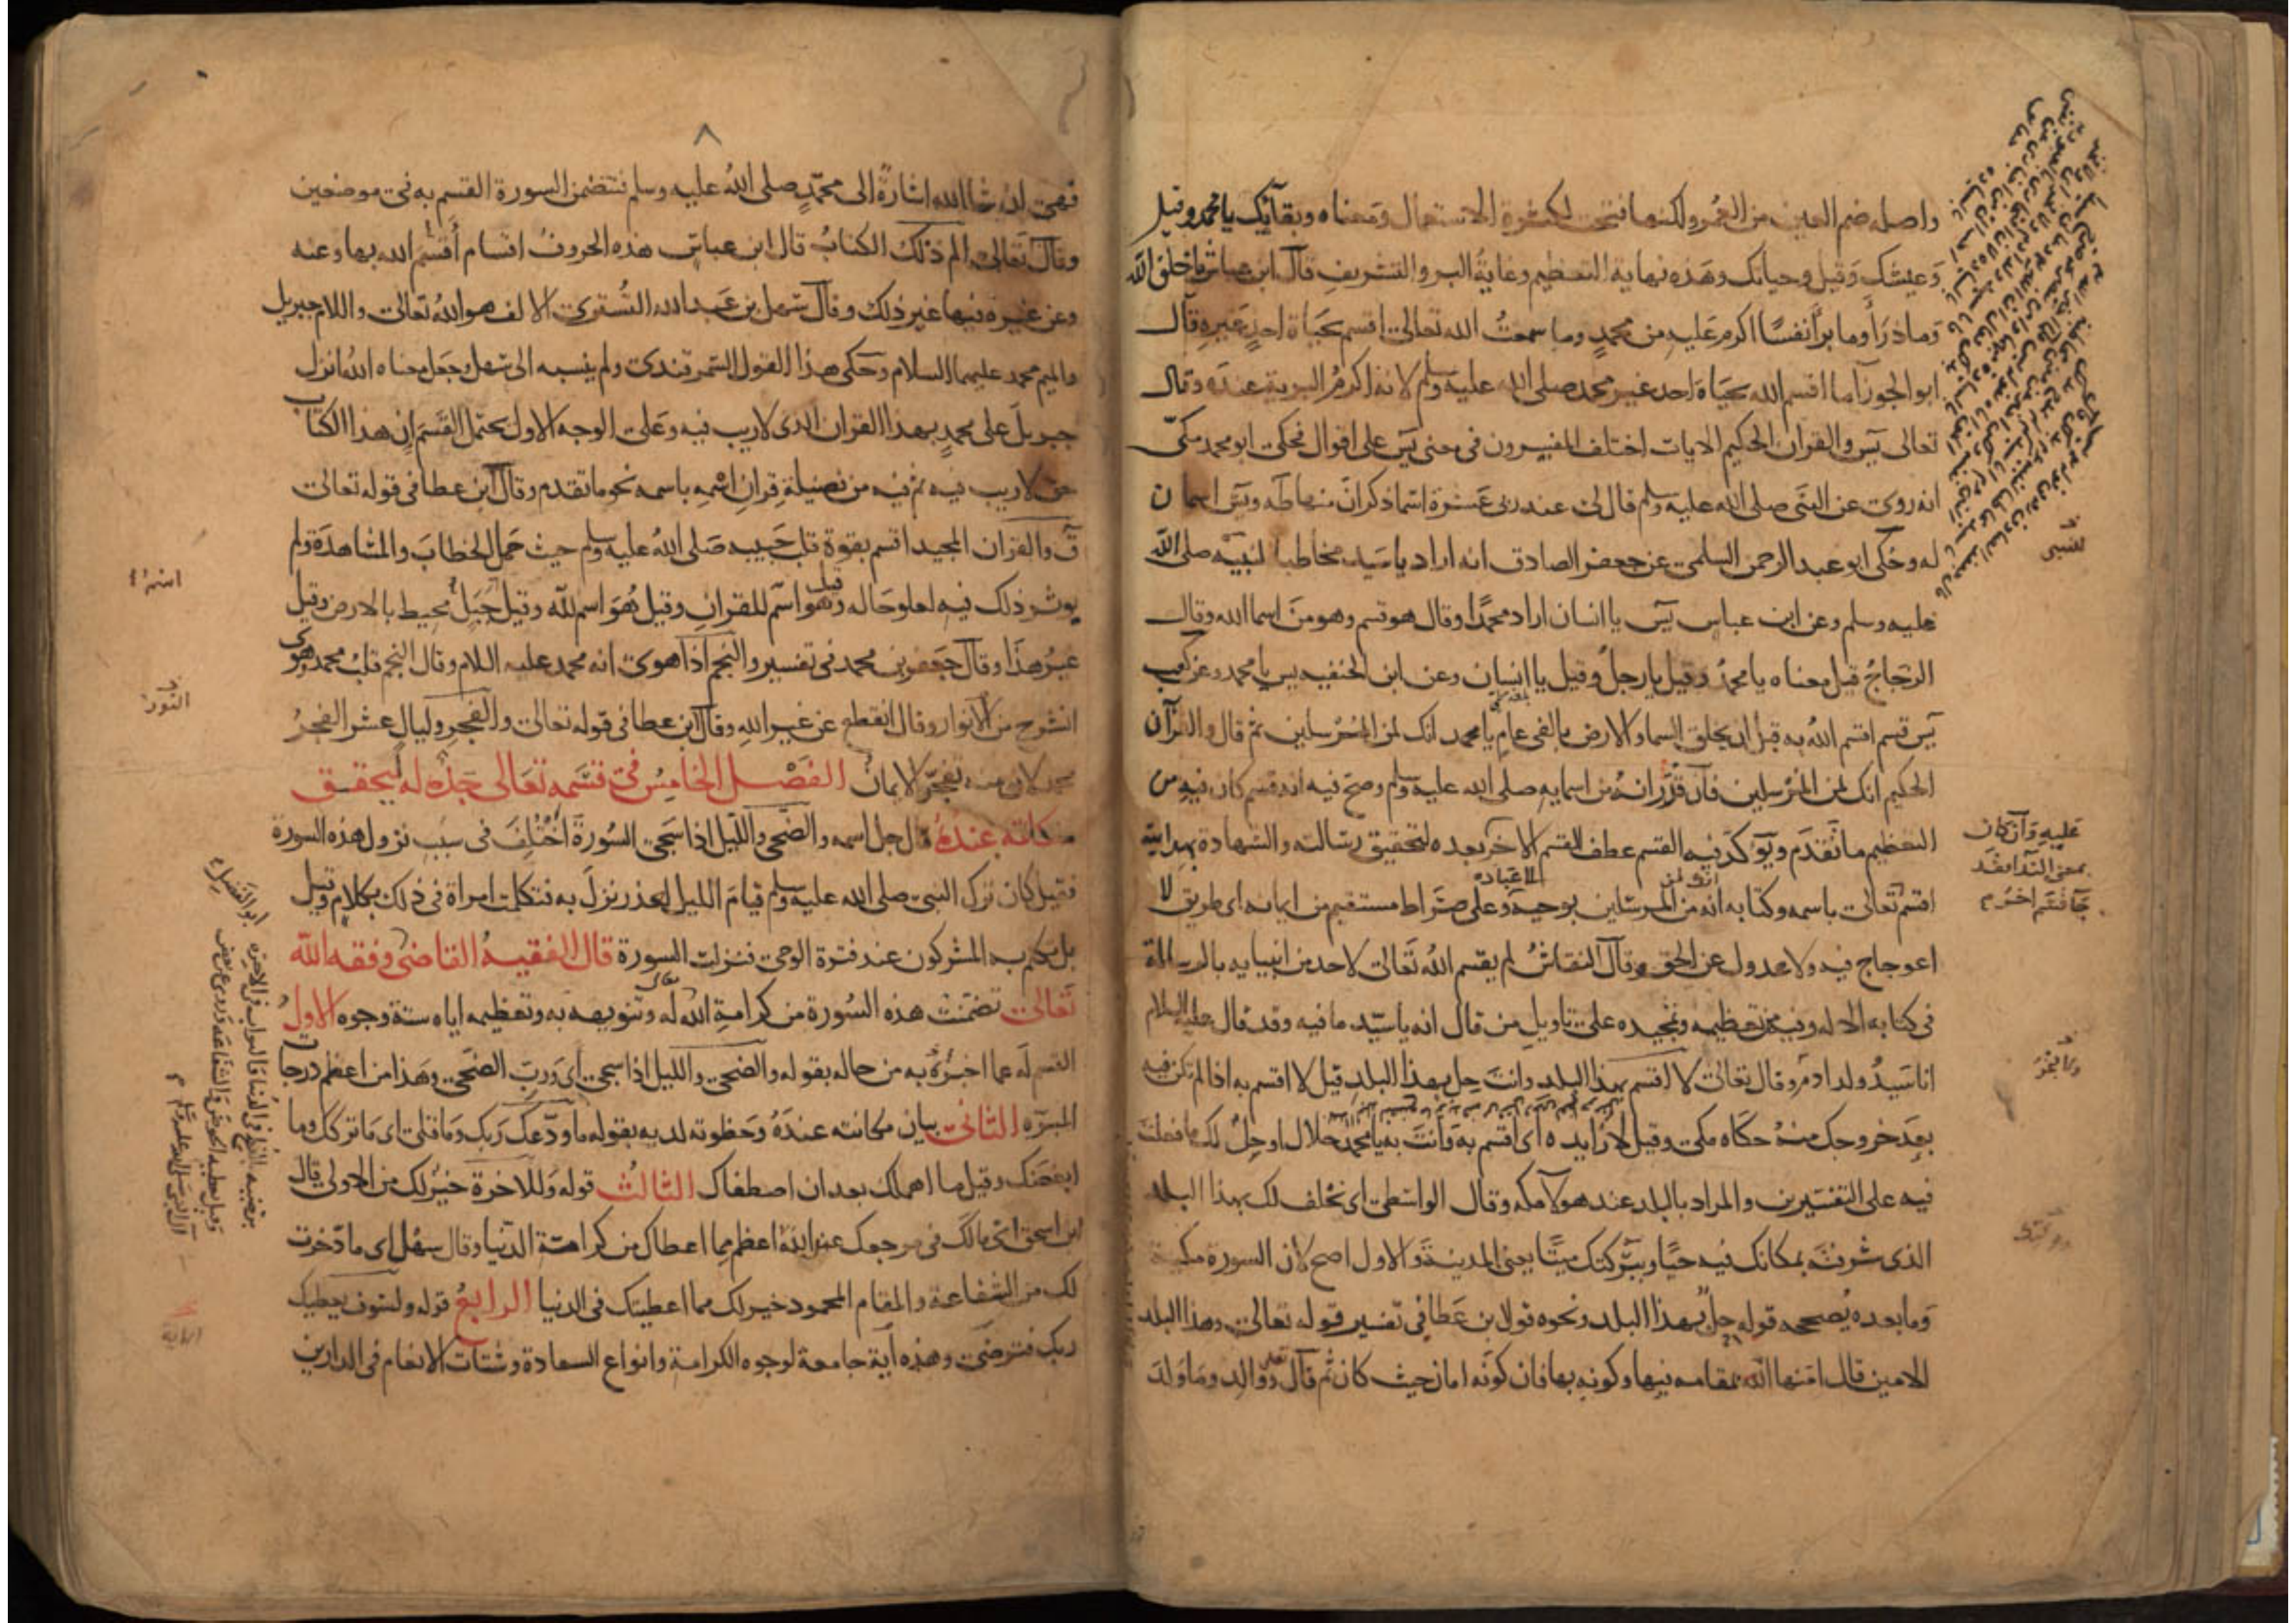 واصله ضم العين من العمر ولكنها فتحت لكثرة الاستعمال ومعناه وبقآيك يا محمد وقيل
وعيشك وقيل وحياتك وهذه نهاية التعظيم وغاية البر والتشريف قال ابن عباس ما خلق الله
وما ذرأ وما برأ نفسًا اكرم عليه من محمدٍ وما سمعتُ الله تعالى اقسم بحياة احدٍ غيره قال
ابو الجوزآ ما اقسم الله بحياة احد غير محمد صلى الله عليه وسلم لانه اكرمُ البرية عنده وقال
تعالى يس والقران الحكيم الايات اختلف المفسرون فى معنى يس على اقوال فحكى ابو محمد مكىّ
انه روى عن النبى صلى الله عليه وسلم قال لى عند ربى عشرة اسما ذكر ان منها طه ويس اسمان
له وحكى ابو عبد الرحمن السلمى عن جعفر الصادق انه اراد يا سيد مخاطبا لنبيه صلى الله
عليه وسلم وعن ابن عباس يس يا انسان اراد محمدًا وقال هو قسم وهو من اسما الله وقال
الزجاجُ قيل معناه يا محمدُ وقيل يا رجلُ وقيل يا انسان وعن ابن الحنفيه يس يا محمد وعن كعب
يس قسم اقسم اللهُ به قبل ان يخلق السما والارض بالفى عامٍ يا محمد انك لمن المرسلين ثم قال والقرآن
الحكيم انك لمن المرسلين فآن قدّر انه من اسمايه صلى الله عليه وسلم وصح فيه انه قسم كان فيه من
التعظيم ما تقدم ويؤكد فيه القسم عطف القسم الاخر بعده لتحقيق رسالته والشهادة بهدايته
اقسم تعالى باسمه وكتابه انه من المرسلين بوحيه وعلى صراط مستقيم من ايمانه اى طريق لا
اعوجاج فيه ولا عدول عن الحق وقال النقاشُ لم يقسم اللهُ تعالى لاحد من انبيايه بالرسالة
فى كتابه الا له وفيه من تعظيمه وتمجيده على تاويل من قال انه يا سيّد ما فيه وقد قال عليه السلام
انا سيدُ ولد ادم وقال تعالى لا اقسم بهذا البلد وانت حل بهذا البلد قيل لا اقسم به اذا لم تكن فيه
بعد خروجك منه حكاه مكى وقيل لا زايده اى اقسم به وانت به يا محمد حلال او حلٌ لك ما فعلت
فيه على التفسيرين والمراد بالبلد عند هولآ مكه وقال الواسطى اى نحلف لك بهذا البلد
الذى شرفته بمكانك فيه حيًا وببركتك ميتًا يعنى المدينة والاول اصح لان السورة مكية
وما بعده يُصححه قوله حلٌ بهذا البلد ونحوه قول ابن عطا فى تفسير قوله تعالى وهذا البلد
الامين قال امنها الله بمقامه فيها وكونه بها فان كونه امان حيث كان ثم قال ووالد وما ولد
للنبى
عليه وآن كان
بمعنى الندا فقد
جآ قسم اخر م
ولا فخر
فهى ان شا الله اشارةٌ الى محمدٍ صلى اللهُ عليه وسلم فتتضمن السورة القسم به فى موضعين
وقال تعالى الم ذلك الكتابُ قال ابن عباس هذه الحروفُ اقسام أقسَم الله بها وعنه
وعن غيره فيها غير ذلك وقال سهل بن عبد الله التُسترى الالف هو الله تعالى واللام جبريل
والميم محمد عليهما السلام وحكى هذا القول السمرقندى ولم ينسبه الى سهل وجعل معناه اللهُ انزل
جبريلَ على محمدٍ بهذا القران الذى لا ريب فيه وعلى الوجه الاول يحتمل القسم ان هذا الكتاب
حق لا ريب فيه ثم فيه من فضيلة قران اسمه باسمه نحو ما تقدم وقال ابن عطا فى قوله تعالى
قَ والقران المجيد اقسم بقوة قلب حبيبه صلى الله عليه وسلم حيث حمل الخطاب والمشاهدة ولم
يوثر ذلك فيه لعلو حاله وقيل هو اسم للقران وقيل هو اسم لله وقيل جبل محيط بالارض وقيل
غيرُ هذا وقال جعفر بن محمد فى تفسير والنجم اذا هوى انه محمد عليه السلام وقال النجم قلبُ محمد وهوى
انشرح من الانوار وقال انقطع عن غير الله وقال ابن عطا فى قوله تعالى والفجر وليال عشر الفجرُ
محمد لان منه تفجّر الايمان الفصل الخامس فى قسمه تعالى جده له ليحقق
مكانته عنده قال جل اسمه والضحى والليل اذا سجى السورة اختُلف فى سبب نزول هذه السورة
فقيل كان ترك النبى صلى الله عليه وسلم قيام الليل لعذر نزل به فتكلمت امراة فى ذلك بكلام وقيل
بل تكلم به المشركون عند فترة الوحى فنزلت السورة قال الفقيه القاضى وفقه الله
تعالى تضمنت هذه السورة من كرامة الله تعالى له وتنويهه به وتعظيمه اياه ستة وجوه الاولُ
القسم له عما اخبره به من حاله بقوله والضحى والليل اذا سجى اى وربِ الضحى وهذا من اعظم درجات
المبرّه الثانى بيان مكانته عنده وحظوته لديه بقوله ما ودّعك ربك وما قلى اى ما تركك وما
ابغضك وقيل ما اهملك بعد ان اصطفاك الثالث قوله وللاخرة خيرٌ لك من الاولى قال
ابن اسحق اى مالك فى مرجعك عند الله اعظم مما اعطاك من كرامة الدنيا وقال سهل اى ما ذخرت
لك من الشفاعة والمقام المحمود خير لك مما اعطيتك فى الدنيا الرابعُ قوله ولسوف يعطيك
ربك فترضى وهذه آية جامعة لوجوه الكرامة وانواع السعادة وشتات الانعام فى الدارين
النور